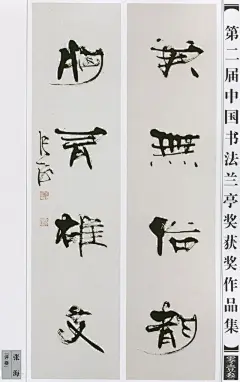 【第二届中国书法兰亭奖获奖作品集】
無俗韻
胸有雄文
张海
张海